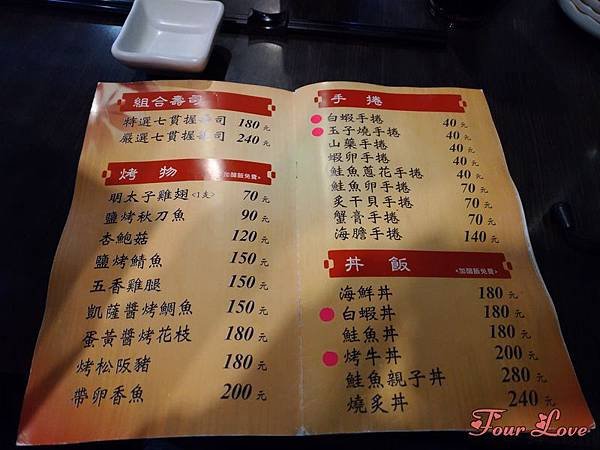 組合壽司
特選七貫握壽司 180元
嚴選七貫握壽司 240元
烤物 <加醋飯免費>
明太子雞翅<1支> 70元
鹽烤秋刀魚 90元
杏鮑菇 120元
鹽烤鯖魚 150元
五香雞腿 150元
凱薩醬烤鯛魚 150元
蛋黃醬烤花枝 180元
烤松阪豬 180元
帶卵香魚 200元
手捲
白蝦手捲 40元
玉子燒手捲 40元
山藥手捲 40元
蝦卵手捲 40元
鮭魚蔥花手捲 40元
鮭魚卵手捲 70元
炙干貝手捲 70元
蟹膏手捲 70元
海膽手捲 140元
丼飯 <加醋飯免費>
海鮮丼 180元
白蝦丼 180元
鮭魚丼 180元
烤牛丼 200元
鮭魚親子丼 280元
燒炙丼 240元
Four Love